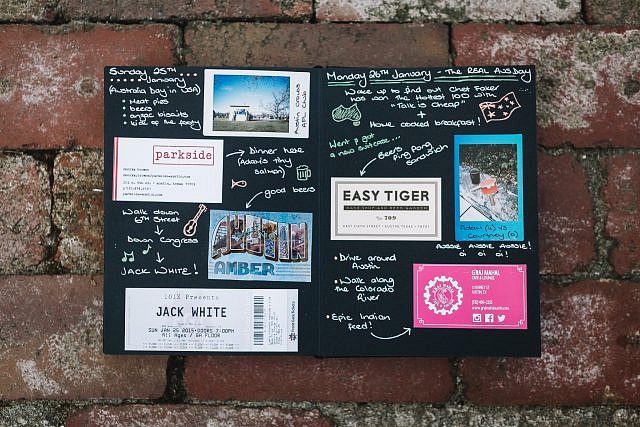 Sunday 25th
January
(Australia Day in USA)
• Meat pies
• beers
• anzac biscuits
• kick of the footy
Austin Crows
AFL Club
parkside
→ Dinner here
(Adam's tiny
salmon)
→ good beers
Walk down
6th Street
↓
Down Congress
↓
JACK WHITE!
AUSTIN
AMBER
101X Presents
JACK WHITE
SUN JAN 25 2015·DOORS 7:00PM
All Ages / GA FLOOR
Monday 26th January - The REAL Aus Day
Wake up to find out Chet Faker
has won the Hottest 100 with
"Talk is Cheap"
+
Home cooked breakfast!
Went & got
a new suitcase...
Beers
Ping Pong
Sandwich
EASY TIGER
BAKE SHOP AND BEER GARDEN
No. 709
EAST SIXTH STREET • AUSTIN, TEXAS • 78701
Adam (4) vs
Courtney (0)
AUSSIE AUSSIE AUSSIE!
Oi Oi Oi!
• Drive around
Austin
• Walk along
the Colorado
River
• Epic Indian
feed!
GRAJ MAHAL
CAFE & LOUNGE
AUSTIN, TX